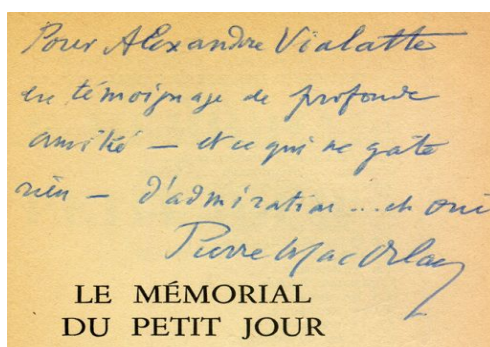 Pour Alexandre Vialatte
en témoignage de profonde
amitié — et ce qui ne gâte
rien — d'admiration ... eh oui
Pierre Mac Orlan
LE MÉMORIAL
DU PETIT JOUR